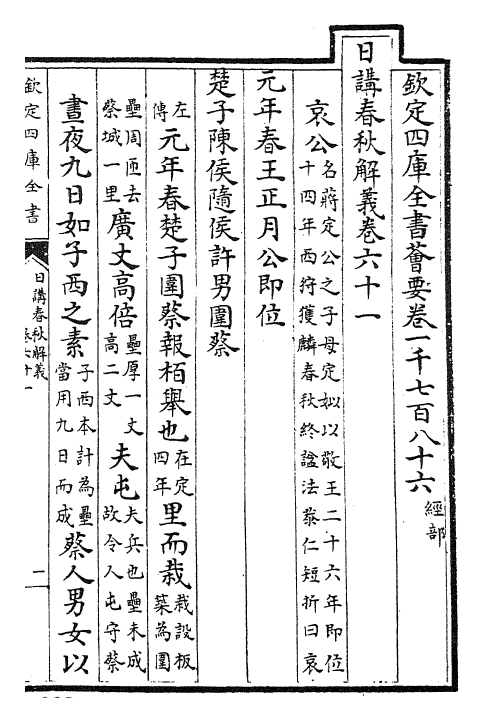 欽定四庫全書薈要卷一千七百八十六 經部
日講春秋解義卷六十一
哀公 名蔣定公之子母定姒以敬王二十六年即位
十四年西狩獲麟春秋終諡法恭仁短折曰哀
元年春王正月公即位
楚子陳侯隨侯許男圍蔡
左傳 元年春楚子圍蔡報栢舉也 在定四年 里而栽 栽設板築為圍
壘周匝去蔡城一里 廣丈高倍 壘厚一丈高二丈 夫屯 夫兵也壘未成故令人屯守蔡
晝夜九日如子西之素 子西本計為壘當用九日而成 蔡人男女以
欽定四庫全書
日講春秋解義
卷六十一
二